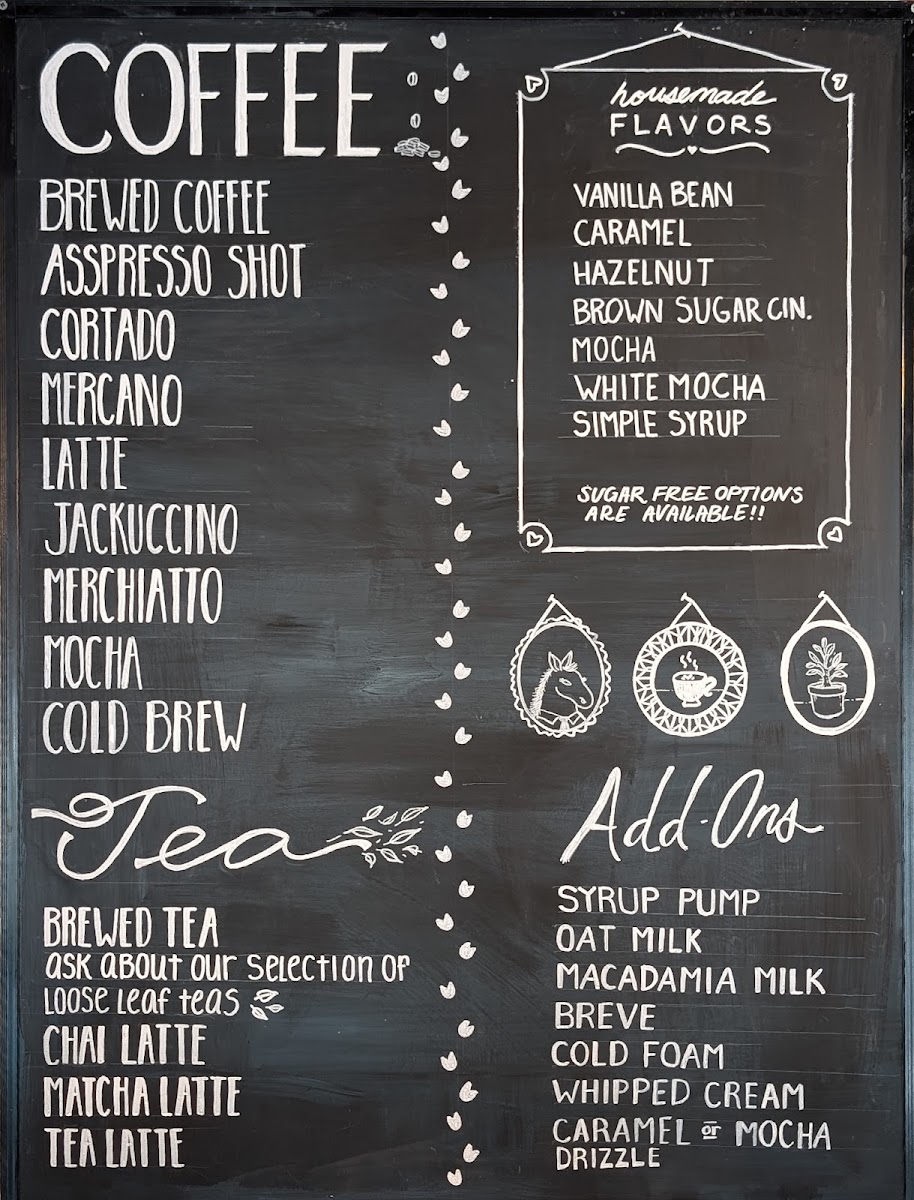 COFFEE
BREWED COFFEE
ASSPRESSO SHOT
CORTADO
MERCANO
LATTE
JACKUCCINO
MERCHIATTO
MOCHA
COLD BREW
Tea
BREWED TEA
ask about our selection of
loose leaf teas
CHAI LATTE
MATCHA LATTE
TEA LATTE
housemade
FLAVORS
VANILLA BEAN
CARAMEL
HAZELNUT
BROWN SUGAR CIN.
MOCHA
WHITE MOCHA
SIMPLE SYRUP
SUGAR FREE OPTIONS
ARE AVAILABLE!!
Add-Ons
SYRUP PUMP
OAT MILK
MACADAMIA MILK
BREVE
COLD FOAM
WHIPPED CREAM
CARAMEL or MOCHA
DRIZZLE